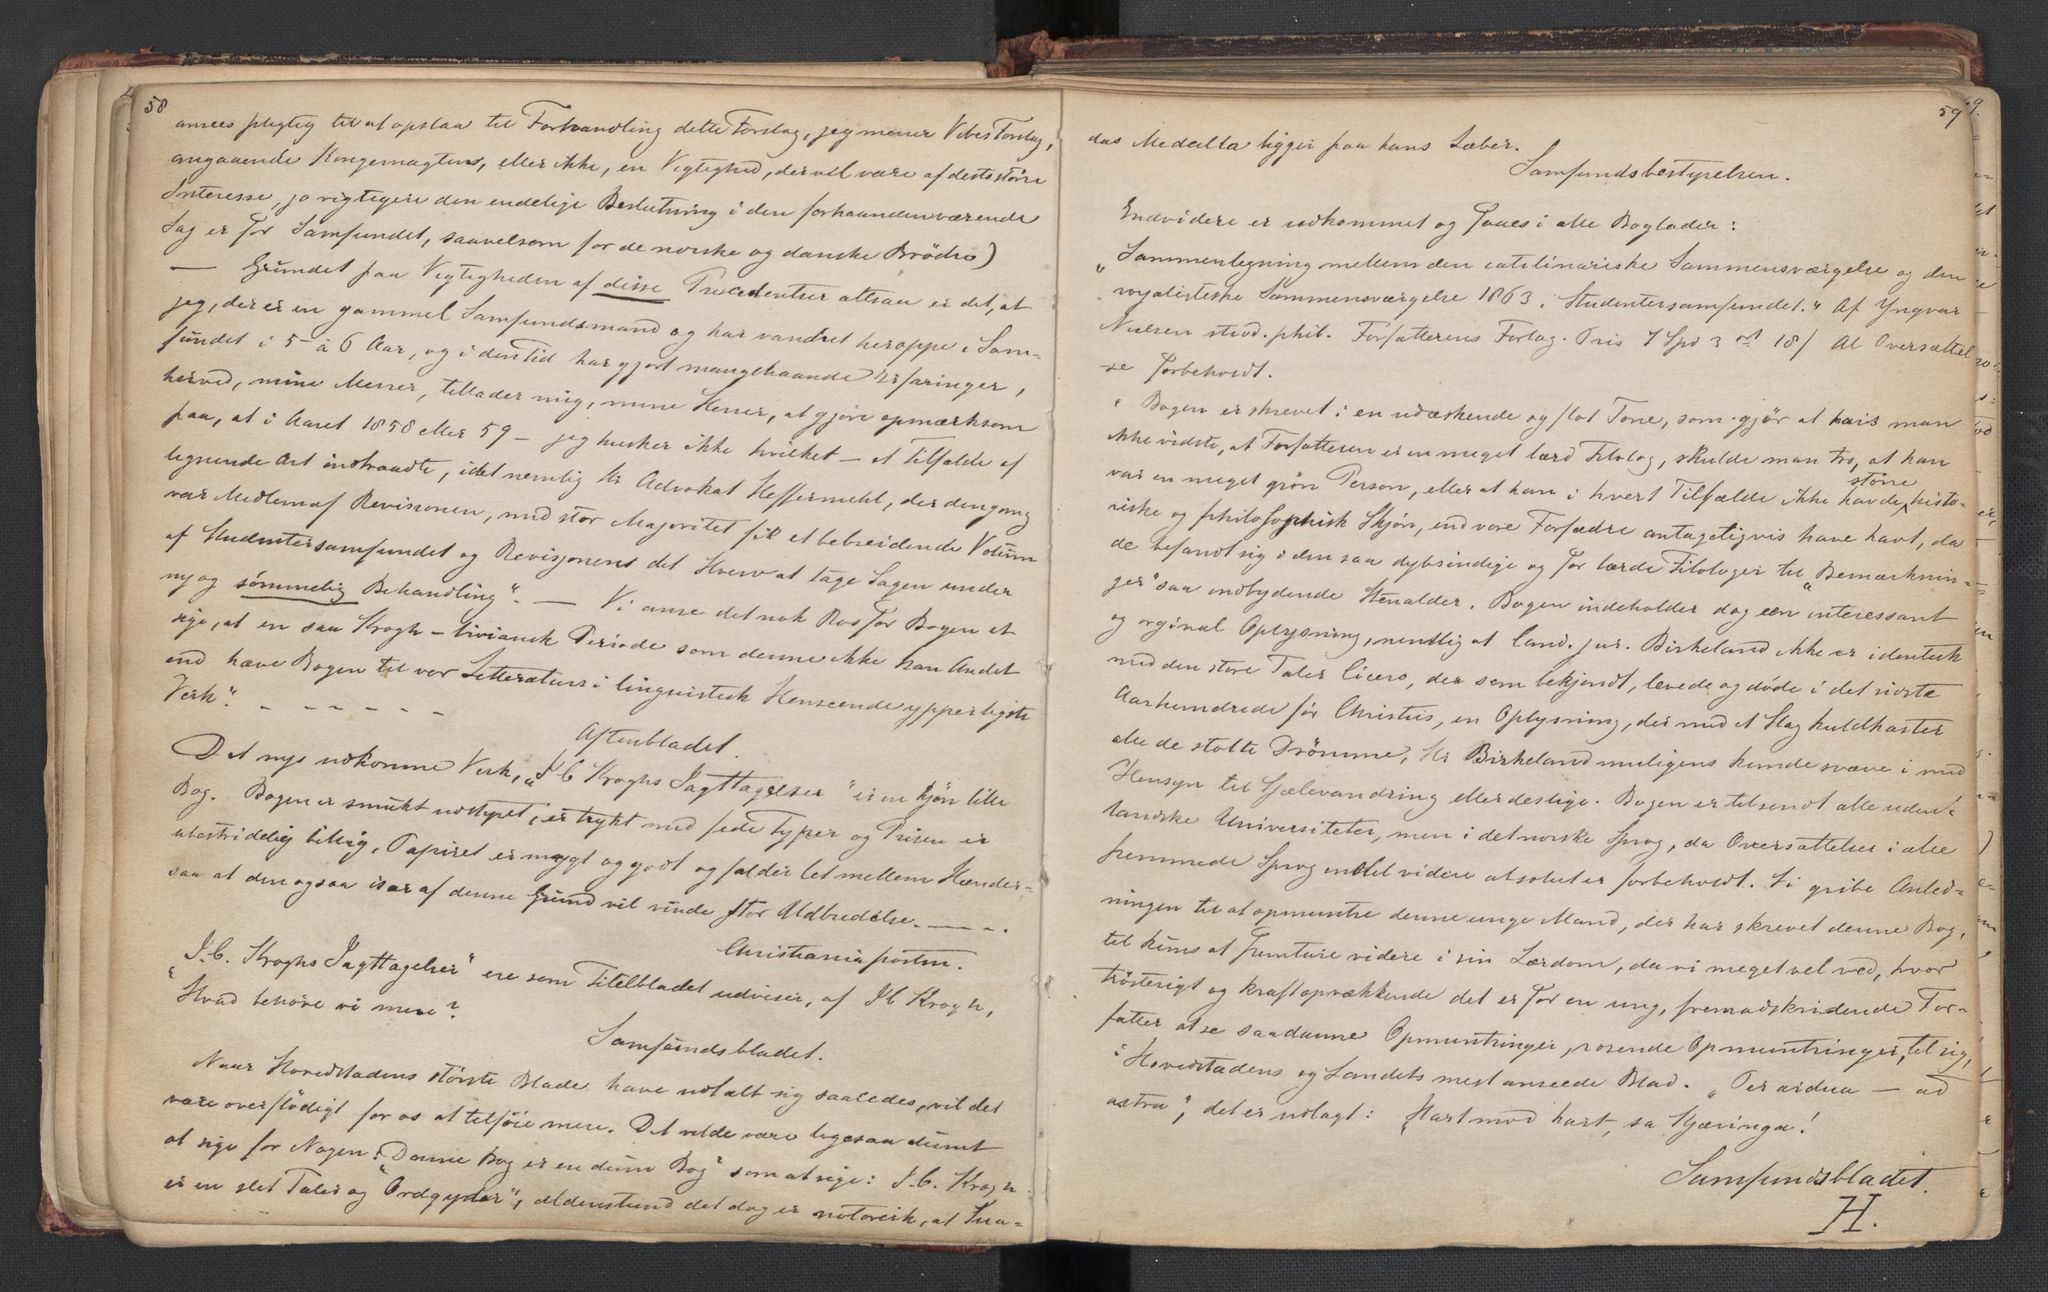 58
ansees pligtig til at opstaa til Forhandling dette Forslag, jeg mener Vibes Forslag,
angaaende Kongemagtens, eller ikke, en Vigtighed, der vil være af desto större
Interesse, jo vigtigere den endelige Beslutning i den forhaandenværende
Sag er for Samfundet, saavelsom for de norske og danske Brödre)
— Grundet paa Vigtigheden af disse Precedentser altsaa er det, at
jeg, der er en gammel Samfundsmand og har vandret heroppe i Sam-
fundet i 5 à 6 Aar, og i den Tid har gjort mangehaande Erfaringer,
herved, mine Herrer, tillader mig, mine Herrer, at gjöre opmærksom
paa, at i Aaret 1858 eller 59 — jeg husker ikke hvilket — et Tilfælde af
lignende Art indtraadte, idet nemlig Hr Advokat Heffermehl, der dengang
var Medlem af Revisionen, med stor Majoritet fik et bebreidende Votum
af Studentersamfundet og Revisjonen det Hverv at tage Sagen under
ny og sömmelig Behandling". — Vi anse det nok Ros for Bogen at
sige, at en saa Krogh-liviansk Periode som denne ikke kan Andet
end hæve Bogen til vor Litteraturs i linguistisk Henseende ypperligste
Verk". — — — — — —
Aftenbladet.
Det nys udkomne Verk, „J C Kroghs Iagttagelser" er en kjön lille
Bog. Bogen er smukt udstyret, er trykt med fede Typer og Prisen er
ubestridelig billig. Papiret er mygt og godt og falder let mellem Hænder-
saa at den ogsaa især af denne Grund vil vinde stor Udbredelse. — — — .
Christianiaposten.
„J.C. Kroghs Iagttagelser" ere som Titelbladet udviser, af J C Krogh,
Hvad behöve vi mere?
Samfundsbladet.
Naar Hovedstadens störste Blade have udtalt sig saaledes, vil det
være overflödigt for os at tilföie mere. Det vilde være ligesaa dumt
at sige for Nogen: „Denne Bog er en dum Bog" som at sige: J.C. Krogh
er en slet Taler og „Ordgyder", aldenstund det dog er notorisk, at Sua-
59
das Medulla ligger paa hans Læber.
Samfundsbestyrelsen.
Endvidere er udkommet og faaes i alle Boglader:
„Sammenligning mellem den catilinariske Sammensværgelse og den
royalistiske Sammensværgelse 1863 i Studentersamfundet." Af Yngvar
Nielsen stud. phil. Forfatterens Forlag. Pris 7 Spd 3 18/ Al Oversættel
se forbeholdt.
Bogen er skrevet i en udæskende og flot Tone, som gjör at hvis man
ikke vidste, at Forfatteren er en meget lærd Filolog, skulde man tro, at han
var en meget grön Person, eller at han i hvert Tilfælde ikke havde större histo-
riske og philosophisk Skjön, end vore Forfædre antageligvis have havt, da
de befandt sig i den saa dybsindige og for lærde Filologer til „Bemærknin-
ger" saa indbydende Stenalder. Bogen indeholder dog een interessant
og orginal Oplysning, nemlig at Cand. jur. Birkeland ikke er identisk
med den store Taler Cicero, der som bekjendt, levede og döde i det sidste
Aarhundrede för Christus, en Oplysning, der med et Slag kuldkaster
alle de stolte Drömme, Hr Birkeland muligens kunde svæve i med
Hensyn til Sjælevandring eller deslige. Bogen er tilsendt alle uden-
landske Universiteter, men i det norske Sprog, da Oversættelser i alle
fremmede Sprog indtil videre absolut er forbeholdt. Vi gribe Anled-
ningen til at opmuntre denne unge Mand, der har skrevet denne Bog,
til kuns at fremture videre i sin Lærdom, da vi meget vel ved, hvor
tröstesrigt og kraftopvækkende det er for en ung, fremadskridende For-
fatter at se saadanne Opmuntringer, rosende Opmuntringer, til sig,
i Hovedstadens og Landets mest ansete Blad. „Per ardua — ad
astra", det er udlagt: „Hart mod hart, sa Kjæringa!
Samfundsbladet.
H.